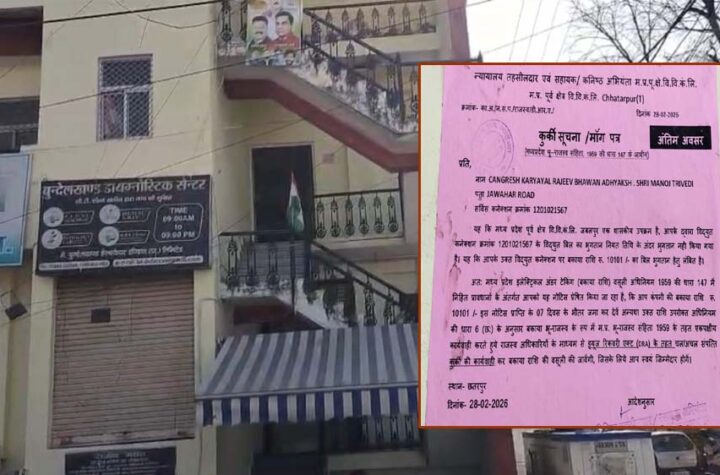 बुन्देलखण्ड डायग्नोस्टिक सेन्टर
TIME
09:00AM
to
09:00 PM
न्यायालय तहसीलदार एवं सहायक/ कनिष्ठ अभियंता म.प्र.पू.क्षे.वि.वि.कं.लि.
म.प्र. पूर्व क्षेत्र वि.वि.कं.लि. Chhatarpur(T)
दिनांक 28-02-2026
कुर्की सूचना /माँग पत्र
अंतिम अवसर
(मध्यप्रदेश भू-राजस्व संहिता, 1959 की धारा 147 के अधीन)
प्रति,
नाम CANGRESH KARYAYAL RAJEEV BHAWAN ADHYAKSH . SHRI MANOJ TRIVEDI
पता JAWAHAR ROAD
सर्विस कनेक्शन क्रमांक 1201021567
यह कि मध्य प्रदेश पूर्व क्षेत्र वि.वि.कं.लि. जबलपुर एक शासकीय उपक्रम है, आपके द्वारा विद्युत
कनेक्शन क्रमांक 1201021567 के विद्युत बिल का भुगतान नियत तिथि के अंदर भुगतान नही किया गया
है। यह कि आपके उक्त विद्युत कनेक्शन पर बकाया राशि रु. 10101 /- का बिल भुगतान हेतु लंबित है।
अतः मध्य प्रदेश इलेक्ट्रिकल अंडर टेकिंग (बकाया राशि) वसूली अधिनियम 1959 की धारा 147 में
निहित प्रावधानों के अंतर्गत आपको यह नोटिस प्रेषित किया जा रहा है, कि आप कंपनी की बकाया राशि रु.
10101 /- इस नोटिस प्राप्ति के 07 दिवस के भीतर जमा कर देवें अन्यथा उक्त राशि उपरोक्त अधिनियम
की धारा 6 के अनुसार बकाया भू-राजस्व के रुप में म.प्र. भू-राजस्व संहिता 1959 के तहत एकपक्षीय
कार्यवाही करते हुये राजस्व अधिकारियों के माध्यम से ड्यूज रिकवरी एक्ट (DRA) के तहत चल/अचल संपत्ति
कुर्की की कार्यवाही कर बकाया राशि की वसूली की जावेगी, जिसके लिये आप स्वयं जिम्मेदार होंगें।
स्थान- छतरपुर
दिनांक- 28-02-2026
आदेशानुसार